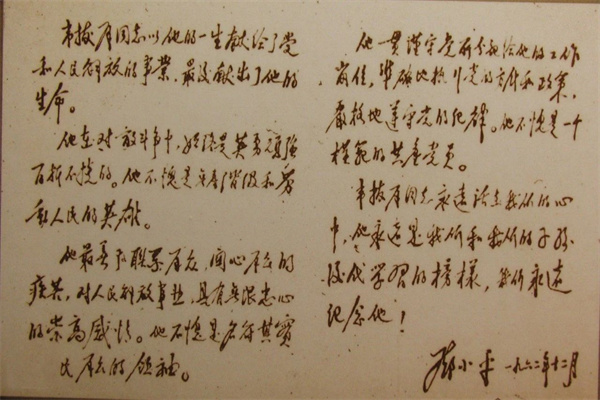 韦拔群同志以他的一生献给了党
和人民解放的事业，最后献出了他的
生命。
他在对敌斗争中，始终是英勇顽强
百折不挠的。他不愧是无产阶级和劳
动人民的英雄。
他最善于联系群众，关心群众的
疾苦，对人民解放事业，具有无限忠心
的崇高感情。他不愧是名符其实
民群众的领袖。
他一贯谨守党所分配给他的工作
岗位，准确地执行党的方针和政策，
严格地遵守党的纪律。他不愧是一个
模范的共产党员。
韦拔群同志永远活在我们的心
中，他永远是我们和我们的子孙
后代学习的榜样，我们永远
纪念他！
邓小平 一九六二年十二月